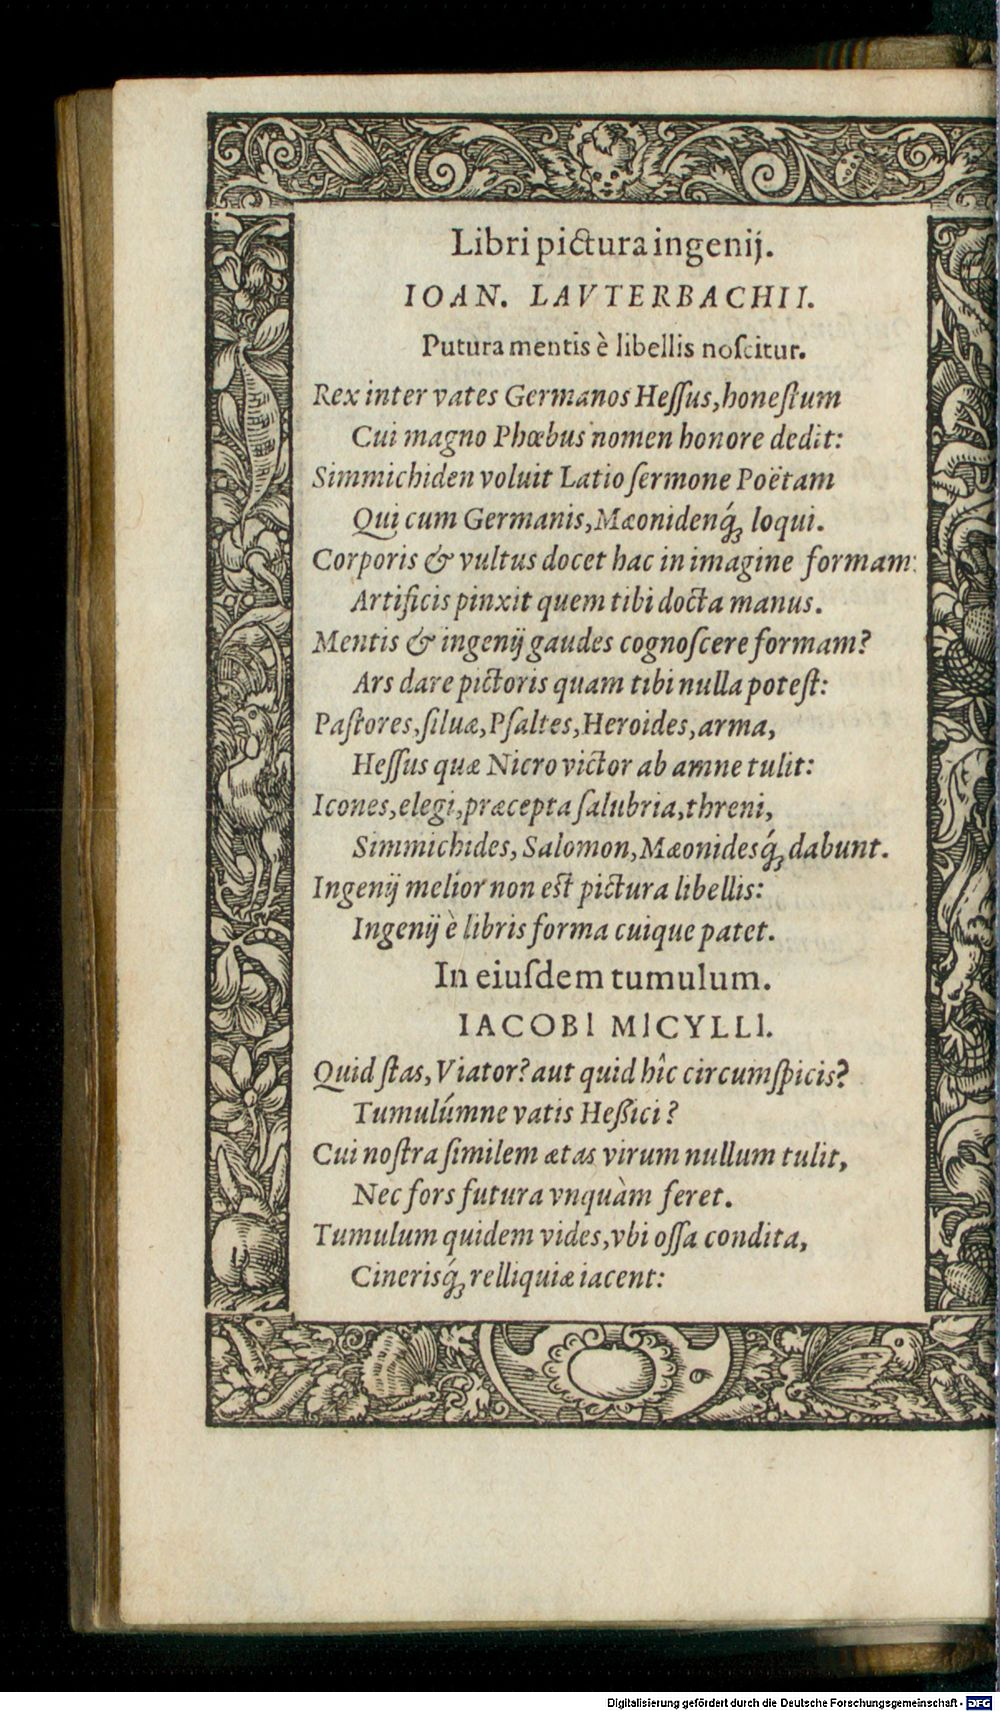 Libri pictura ingenij.
IOAN. LAVTERBACHII.
Putura mentis è libellis noſcitur.
Rex inter vates Germanos Heſſus, honeſtum
Cui magno Phœbus nomen honore dedit:
Simmichiden voluit Latio ſermone Poëtam
Qui cum Germanis, Mæonidenq́; loqui.
Corporis & vultus docet hac in imagine formam:
Artificis pinxit quem tibi docta manus.
Mentis & ingenij gaudes cognoſcere formam?
Ars dare pictoris quam tibi nulla poteſt:
Paſtores, ſiluæ, Pſaltes, Heroides, arma,
Heſſus quæ Nicro victor ab amne tulit:
Icones, elegi, præcepta ſalubria, threni,
Simmichides, Salomon, Mæonidesq́; dabunt.
Ingenij melior non eſt pictura libellis:
Ingenij è libris forma cuique patet.
In eiuſdem tumulum.
IACOBI MICYLLI.
Quid ſtas, Viator? aut quid hîc circumſpicis?
Tumulúmne vatis Heßici?
Cui noſtra ſimilem ætas virum nullum tulit,
Nec fors futura vnquàm feret.
Tumulum quidem vides, vbi oſſa condita,
Cinerisq́; relliquiæ iacent:
Digitalisierung gefördert durch die Deutsche Forschungsgemeinschaft - DFG